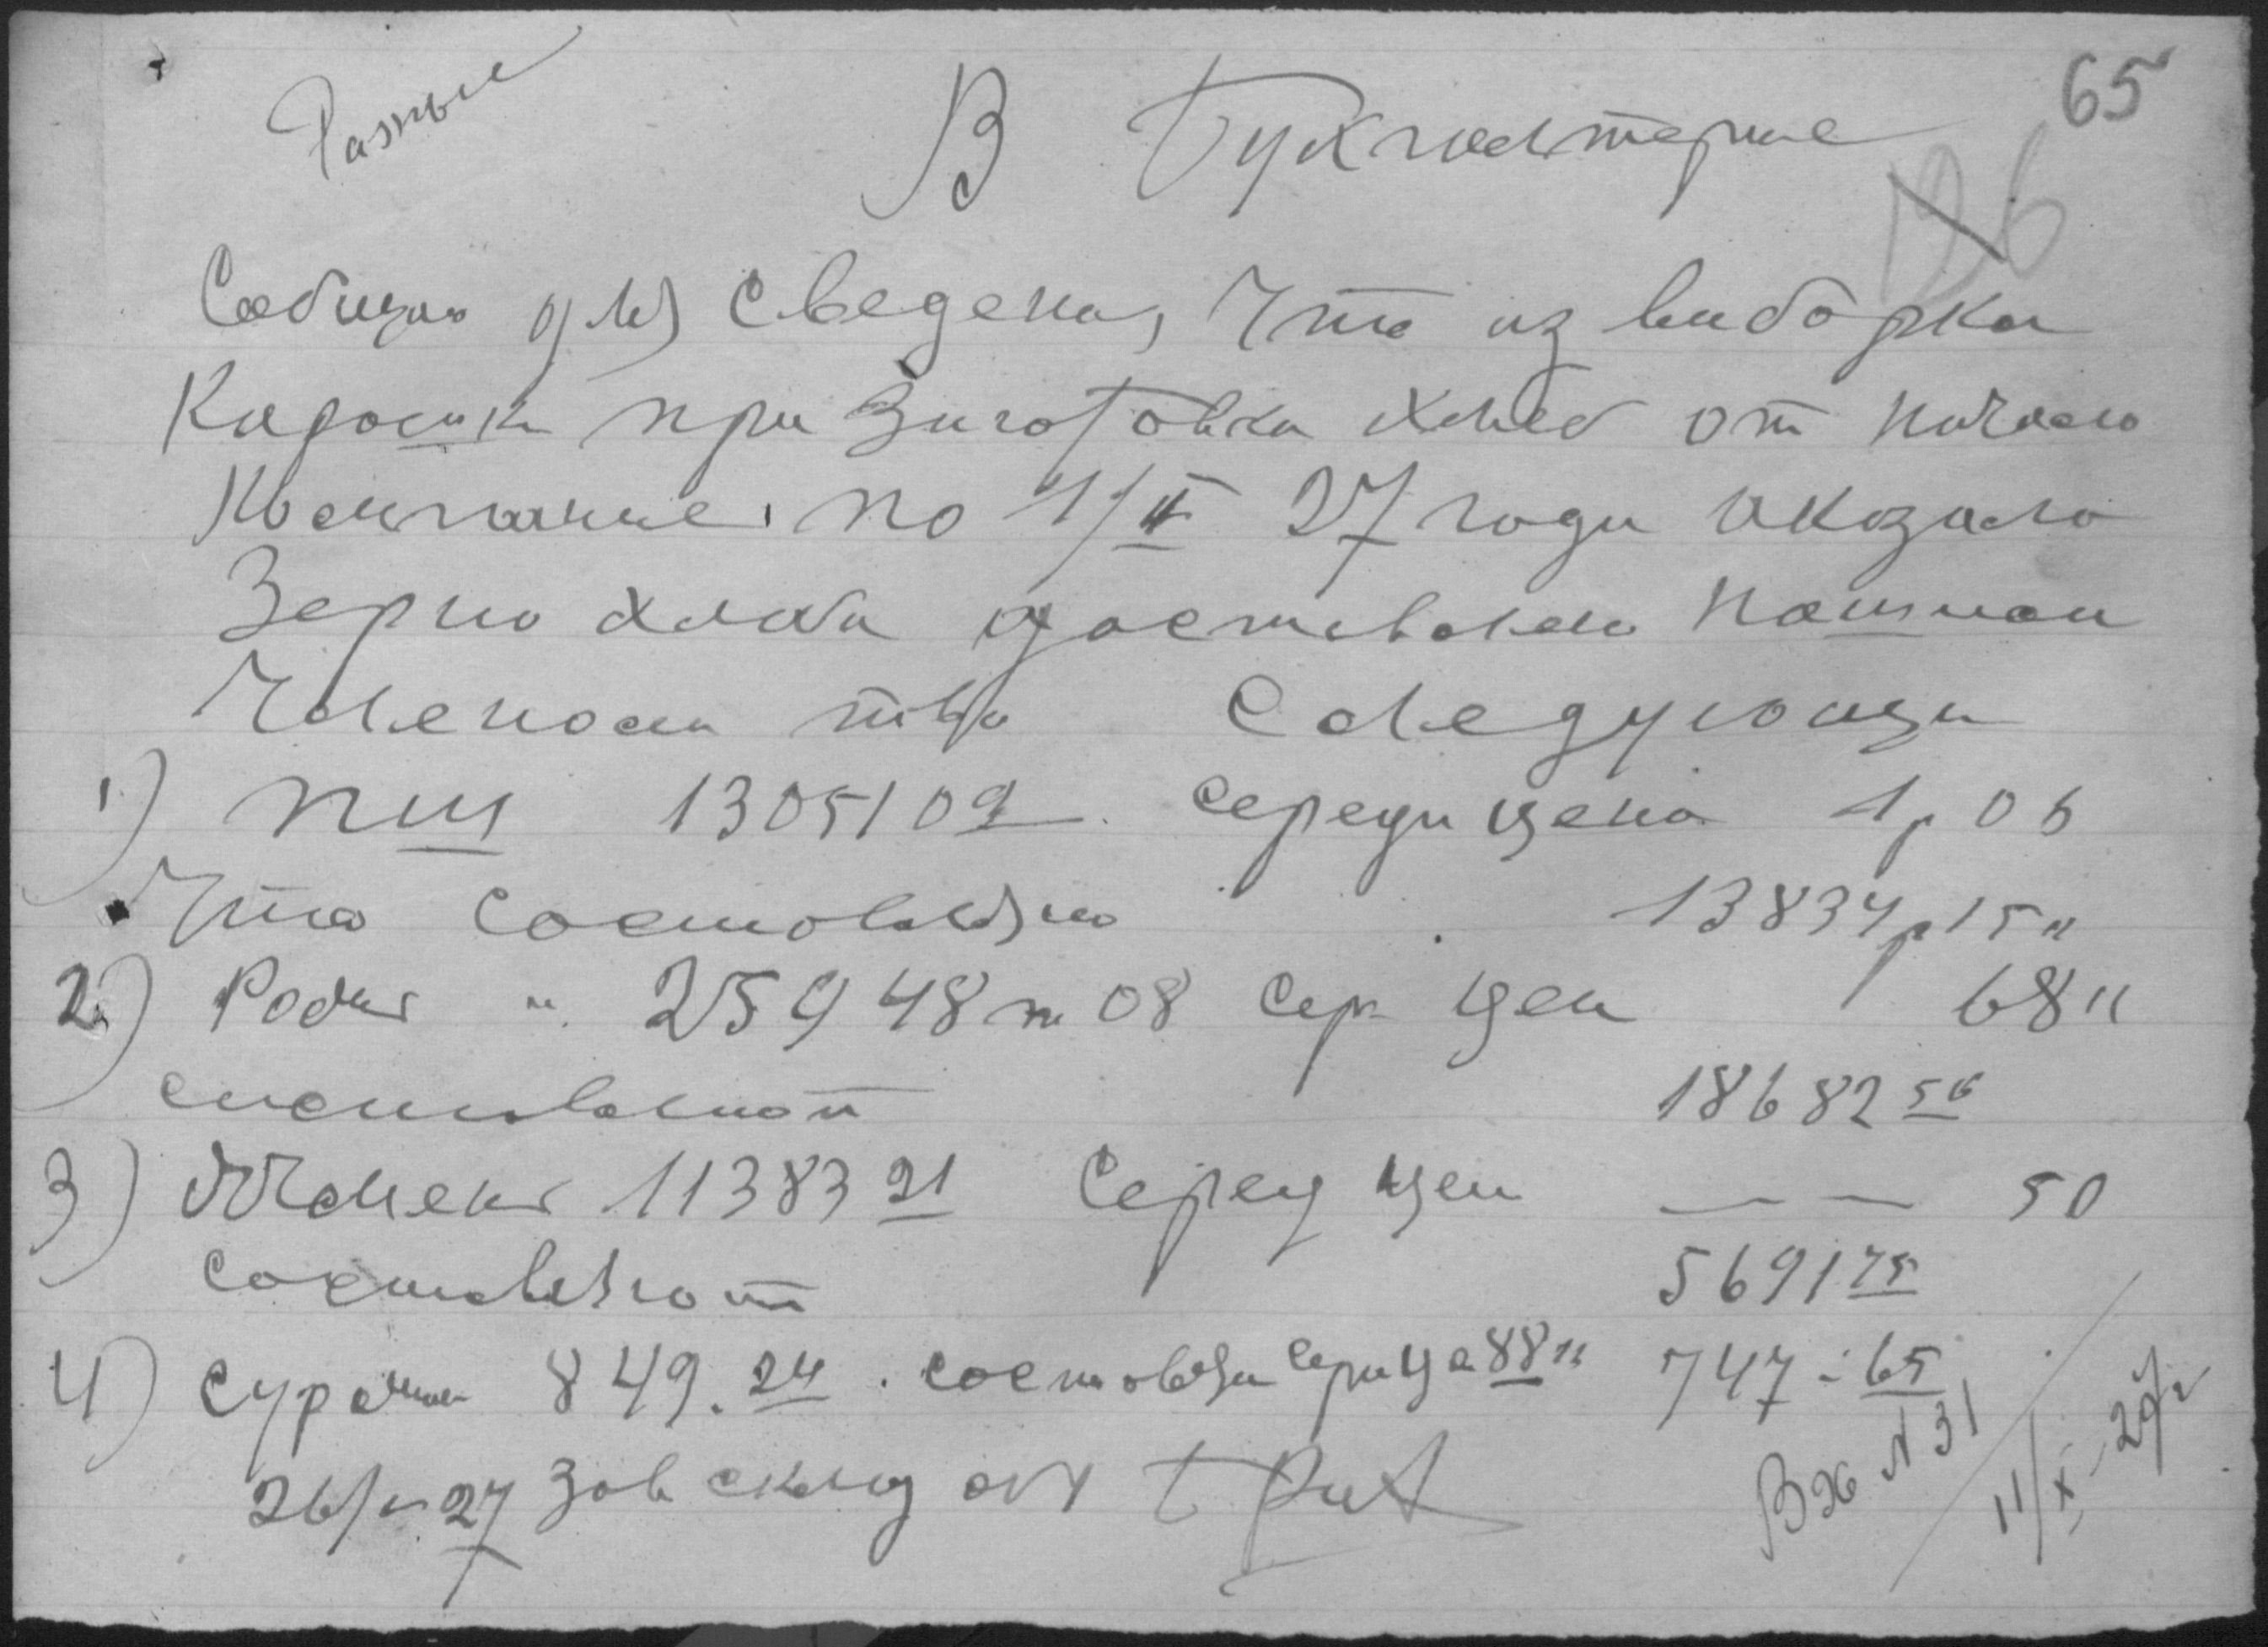 Разные
65
В Бухгалтерие
126
Сообщаю для сведения, что из виборки
при Заготовки хлеб от начало
Компание по 1/II 27 года оказало
Зерно хлеба доставлено нашими
Членами тва Следующи
1) пш 13051 09 середн цена 1р 06
Что составляю 13834р 15к
2) Рожь " 25948 п 08 сер цен 68к
составляют 18682 56
3) Ячмень 11383 21 Серед цен — — 50
составляют 5691 75
4) сурожи 849.24. составля сер ца 88к 747-65
26/II 27 Зав склад
Вх N 31
11/X-29г